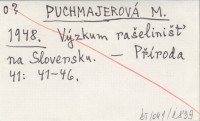 o? PUCHMAJEROVÁ M.
1948. Výzkum rašelinišť
na Slovensku. — Příroda
41: 41-46.